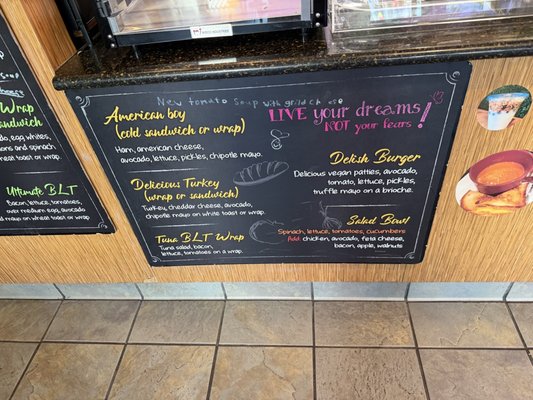 Wrap
sandwich
Ultimate BLT
Bacon, lettuce, tomatoes,
over medium egg, avocado
on wheat toast or wrap.
New tomato soup with grilld cheese
American boy
(cold sandwich or wrap)
Ham, american cheese,
avocado, lettuce, pickles, chipotle mayo.
Delicious Turkey
(wrap or sandwich)
Turkey, cheddar cheese, avocado,
chipotle mayo on white toast or wrap.
Tuna BLT Wrap
Tuna salad, bacon,
lettuce, tomatoes on a wrap.
LIVE your dreams!
NOT your fears
Delish Burger
Delicious vegan patties, avocado,
tomato, lettuce, pickles,
truffle mayo on a brioche.
Salad Bowl
Spinach, lettuce, tomatoes, cucumbers
Add: chicken, avocado, feta cheese,
bacon, apple, walnuts